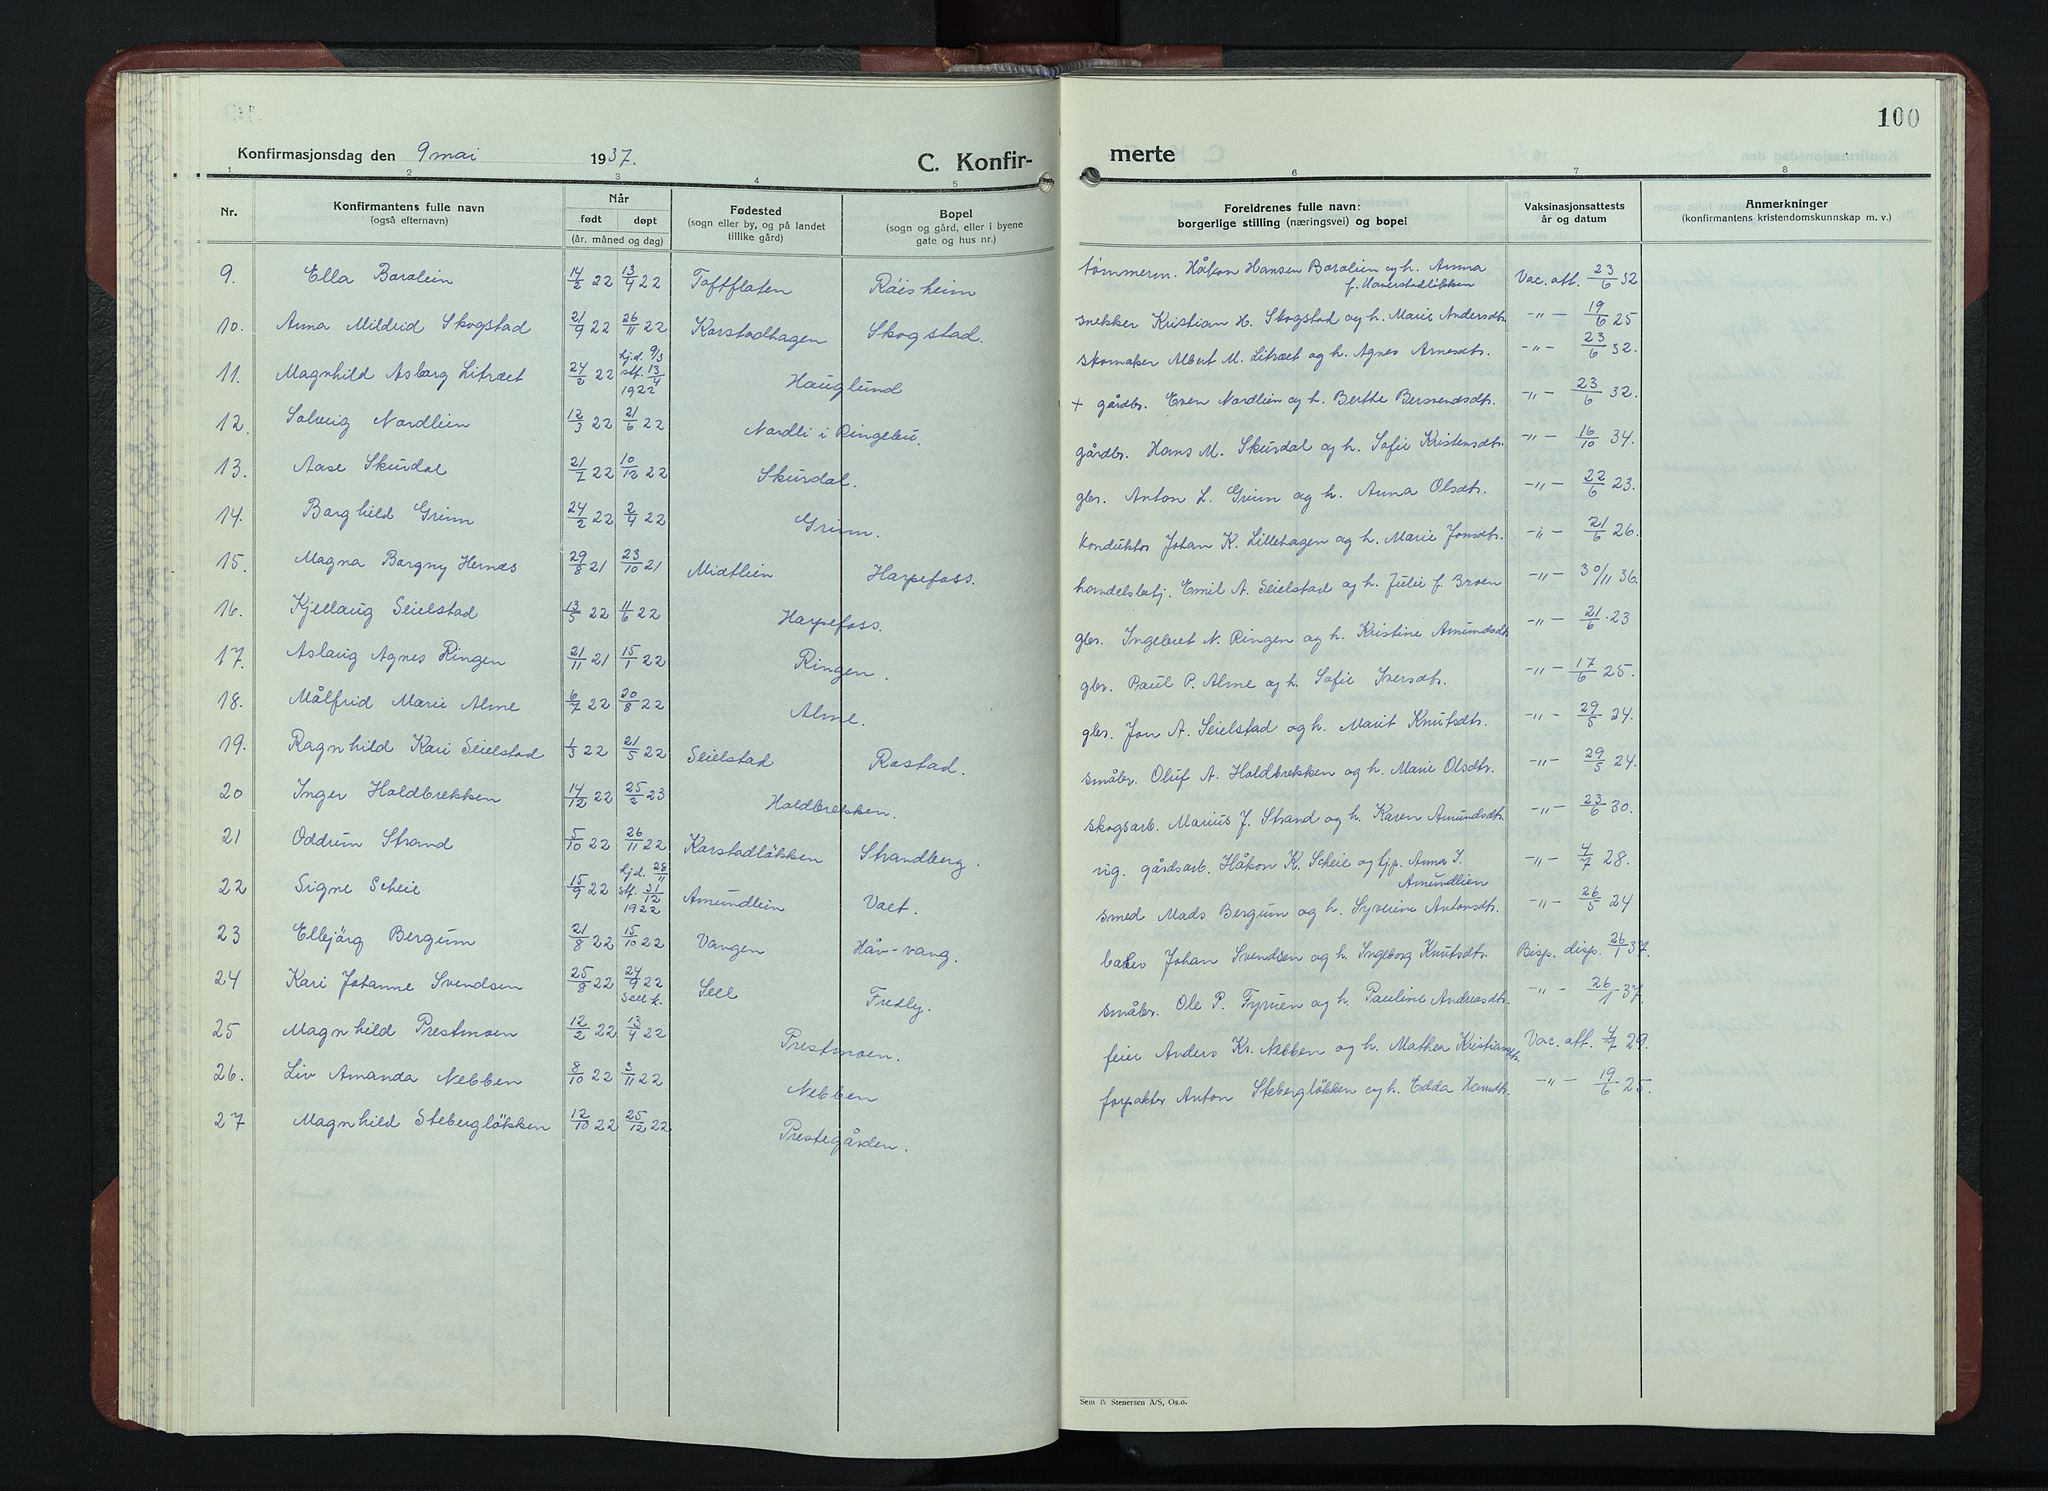 100
Konfirmasjonsdag den 9 mai 1937.
C. Konfir-
merte
1 2 3 4 5
6 7 8
Nr.
Konfirmantens fulle navn
(også efternavn)
Når
født døpt
(år, måned og dag)
Fødested
(sogn eller by, og på landet
tillike gård)
Bopel
(sogn og gård, eller i byene
gate og hus nr.)
Foreldrenes fulle navn:
borgerlige stilling (næringsvei) og bopel
Vaksinasjonsattests
år og datum
Anmerkninger
(konfirmantens kristendomskunnskap m. v.)
9. Ella Baralein 14/2 22 13/4 22 Toftflaten Räisheim
10. Anna Mildrid Skogstad 21/9 22 26/11 22 Karstadhagen Skogstad.
11. Magnhild Asbørg Litræet 24/2 22 hjd. 9/3 stf. 13/4 1922 Hauglund
12. Solveig Nordlien 12/3 22 21/6 22 Nordli i Ringebu.
13. Aase Skurdal 21/7 22 10/12 22 Skurdal.
14. Borghild Grimm 24/2 22 2/4 22 Grimm.
15. Magna Borgny Hernes 29/8 21 23/10 21 Midtlien Harpefoss.
16. Kjellaug Seielstad 13/5 22 11/6 22 Harpefoss.
17. Aslaug Agnes Ringen 21/11 21 15/1 22 Ringen.
18. Målfrid Marie Alme 6/7 22 20/8 22 Alme.
19. Ragnhild Kari Seielstad 1/3 22 21/5 22 Seielstad Rostad.
20 Inger Holdbrekken 14/12 22 25/2 23 Holdbrekken.
21 Oddrun Strand 5/10 22 26/11 22 Karstadløkken Strandberg.
22 Signe Scheie 15/9 22 hjd. 28/11 stf. 31/12 1922 Amundlien Valt.
23 Ellbjørg Bergum 21/8 22 15/10 22 Vangen Håv-vang.
24 Kari Johanne Svendsen 25/8 22 24/9 22 Sell k. Sell Fredly.
25 Magnhild Prestmoen 12/2 22 13/4 22 Prestmoen.
26. Liv Amanda Nebben 8/10 22 3/11 22 Nebben
27 Magnhild Stebergløkken 12/10 22 25/12 22 Prestegården.
tømmerm. Håkon Hansen Baralien og h. Anna Vac. att. 23/6 32
f. Haverstadløkken
snekker Kristian H. Skogstad og h. Marie Andersdtr. -"- 19/6 25
skomaker Albert M. Litræet og h. Agnes Arnesdtr. -"- 23/6 32.
+ gårdbr. Even Nordlien og h. Berthe Bersvendsdtr. -"- 23/6 32.
gårdbr. Hans M. Skurdal og h. Sofie Kristensdtr. -"- 16/10 34.
gbr. Anton L. Grimm og h. Anna Olsdtr. -"- 22/6 23.
konduktør Johan K. Lillehagen og h. Marie Jonsdtr. -"- 21/6 26.
handelsbetj. Emil A. Seielstad og h. Julie f. Broen -"- 30/11 36.
gbr. Ingebret N. Ringen og h. Kristine Amundsdtr. -"- 21/6 23
gbr. Paul P. Alme og h. Sofie Iversdtr. -"- 17/6 25.
gbr. Jon A. Seielstad og h. Marit Knutsdtr. -"- 29/5 24.
småbr. Oluf A. Holdbrekken og h. Marie Olsdtr. -"- 29/5 24.
skogsarb. Marius J. Strand og h. Karen Amundsdtr. -"- 23/6 30.
ug. gårdsarb. Håkon K. Scheie og tjp. Anna I. -"- 4/7 28.
Amundlien
smed Mads Bergum og h. Syverine Antonsdtr. -"- 26/5 24
Johan Svendsen og h. Ingeborg Knutsdtr. Bisp. disp. 26/1 37.
småbr. Ole P. Fyruen og h. Pauline Andreasdtr. -"- 26/1 37
feier Anders Kr. Nebben og h. Mathea Kristiansdtr. Vac. att. 4/7 29.
forpakter Anton Stebergløkken og h. Edda Hansdtr. -"- 19/6 25.
Sem & Stenersen A/S, Oslo.